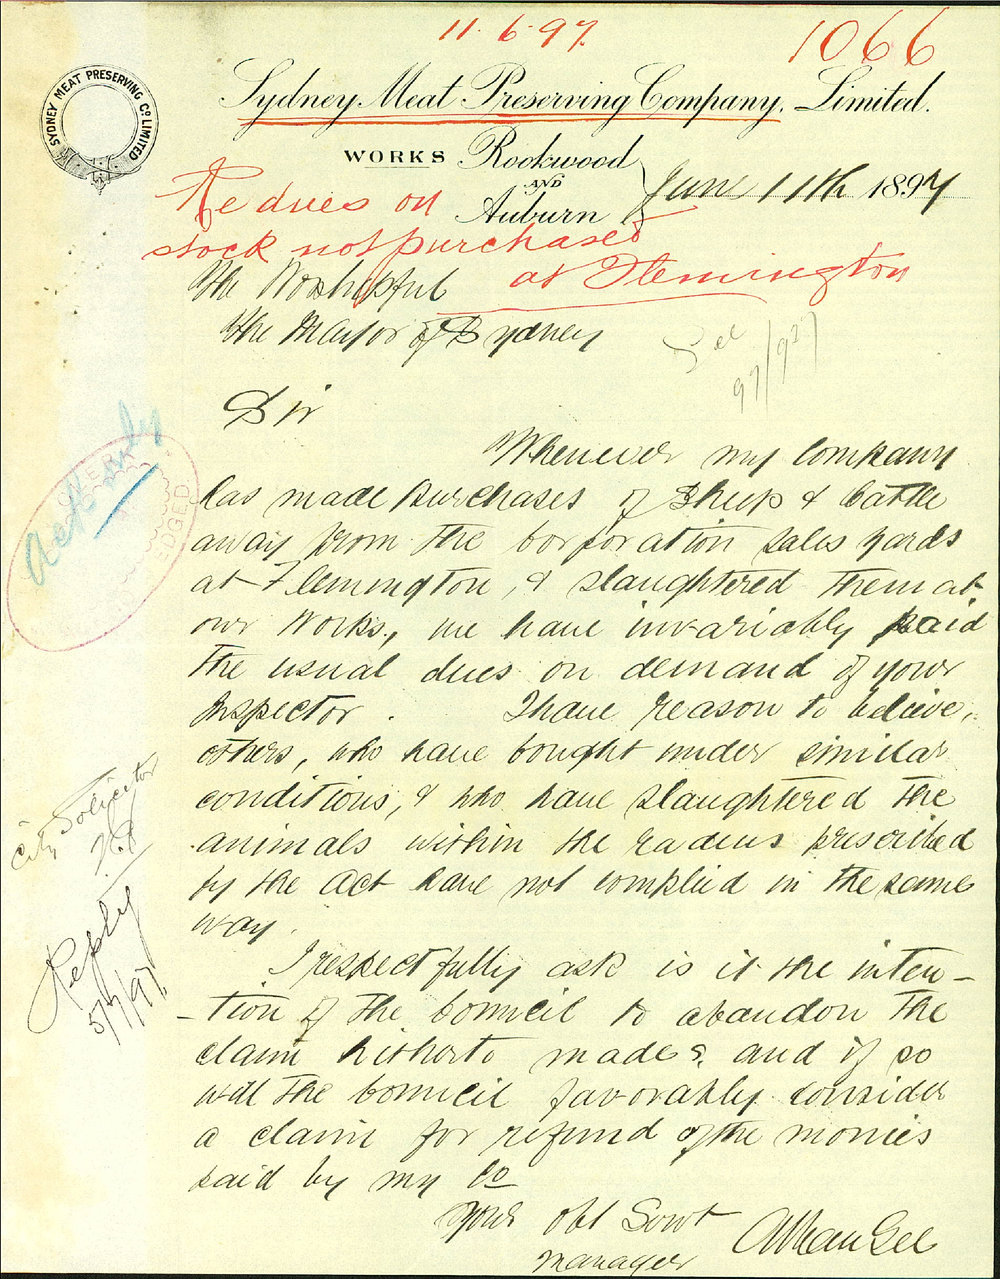 11.6.97.
1066
SYDNEY MEAT PRESERVING CO. LIMITED
Sydney Meat Preserving Company, Limited.
WORKS Rookwood
AND
Auburn
June 11th 1897
Re dues on
stock not purchased
at Flemington
The Worshipful
the Mayor of Sydney
See
97/927
Sir
Whenever my Company
has made purchases of Sheep & Cattle
away from the Corporation sales yards
at Flemington, & slaughtered them at
our Works, we have invariably paid
the usual dues on demand of your
Inspector. I have reason to believe,
others, who have bought under similar
conditions, & who have slaughtered the
animals within the radeus prescribed
by the Act have not complied in the same
way.
I respectfully ask is it the inten-
-tion of the Council to abandon the
claim hitherto made? and if so
will the Council favorably consider
a claim for refund of the monies
paid by my Co
Your Obt Servt
Manager
City Solicitor
Reply
5/7/97.